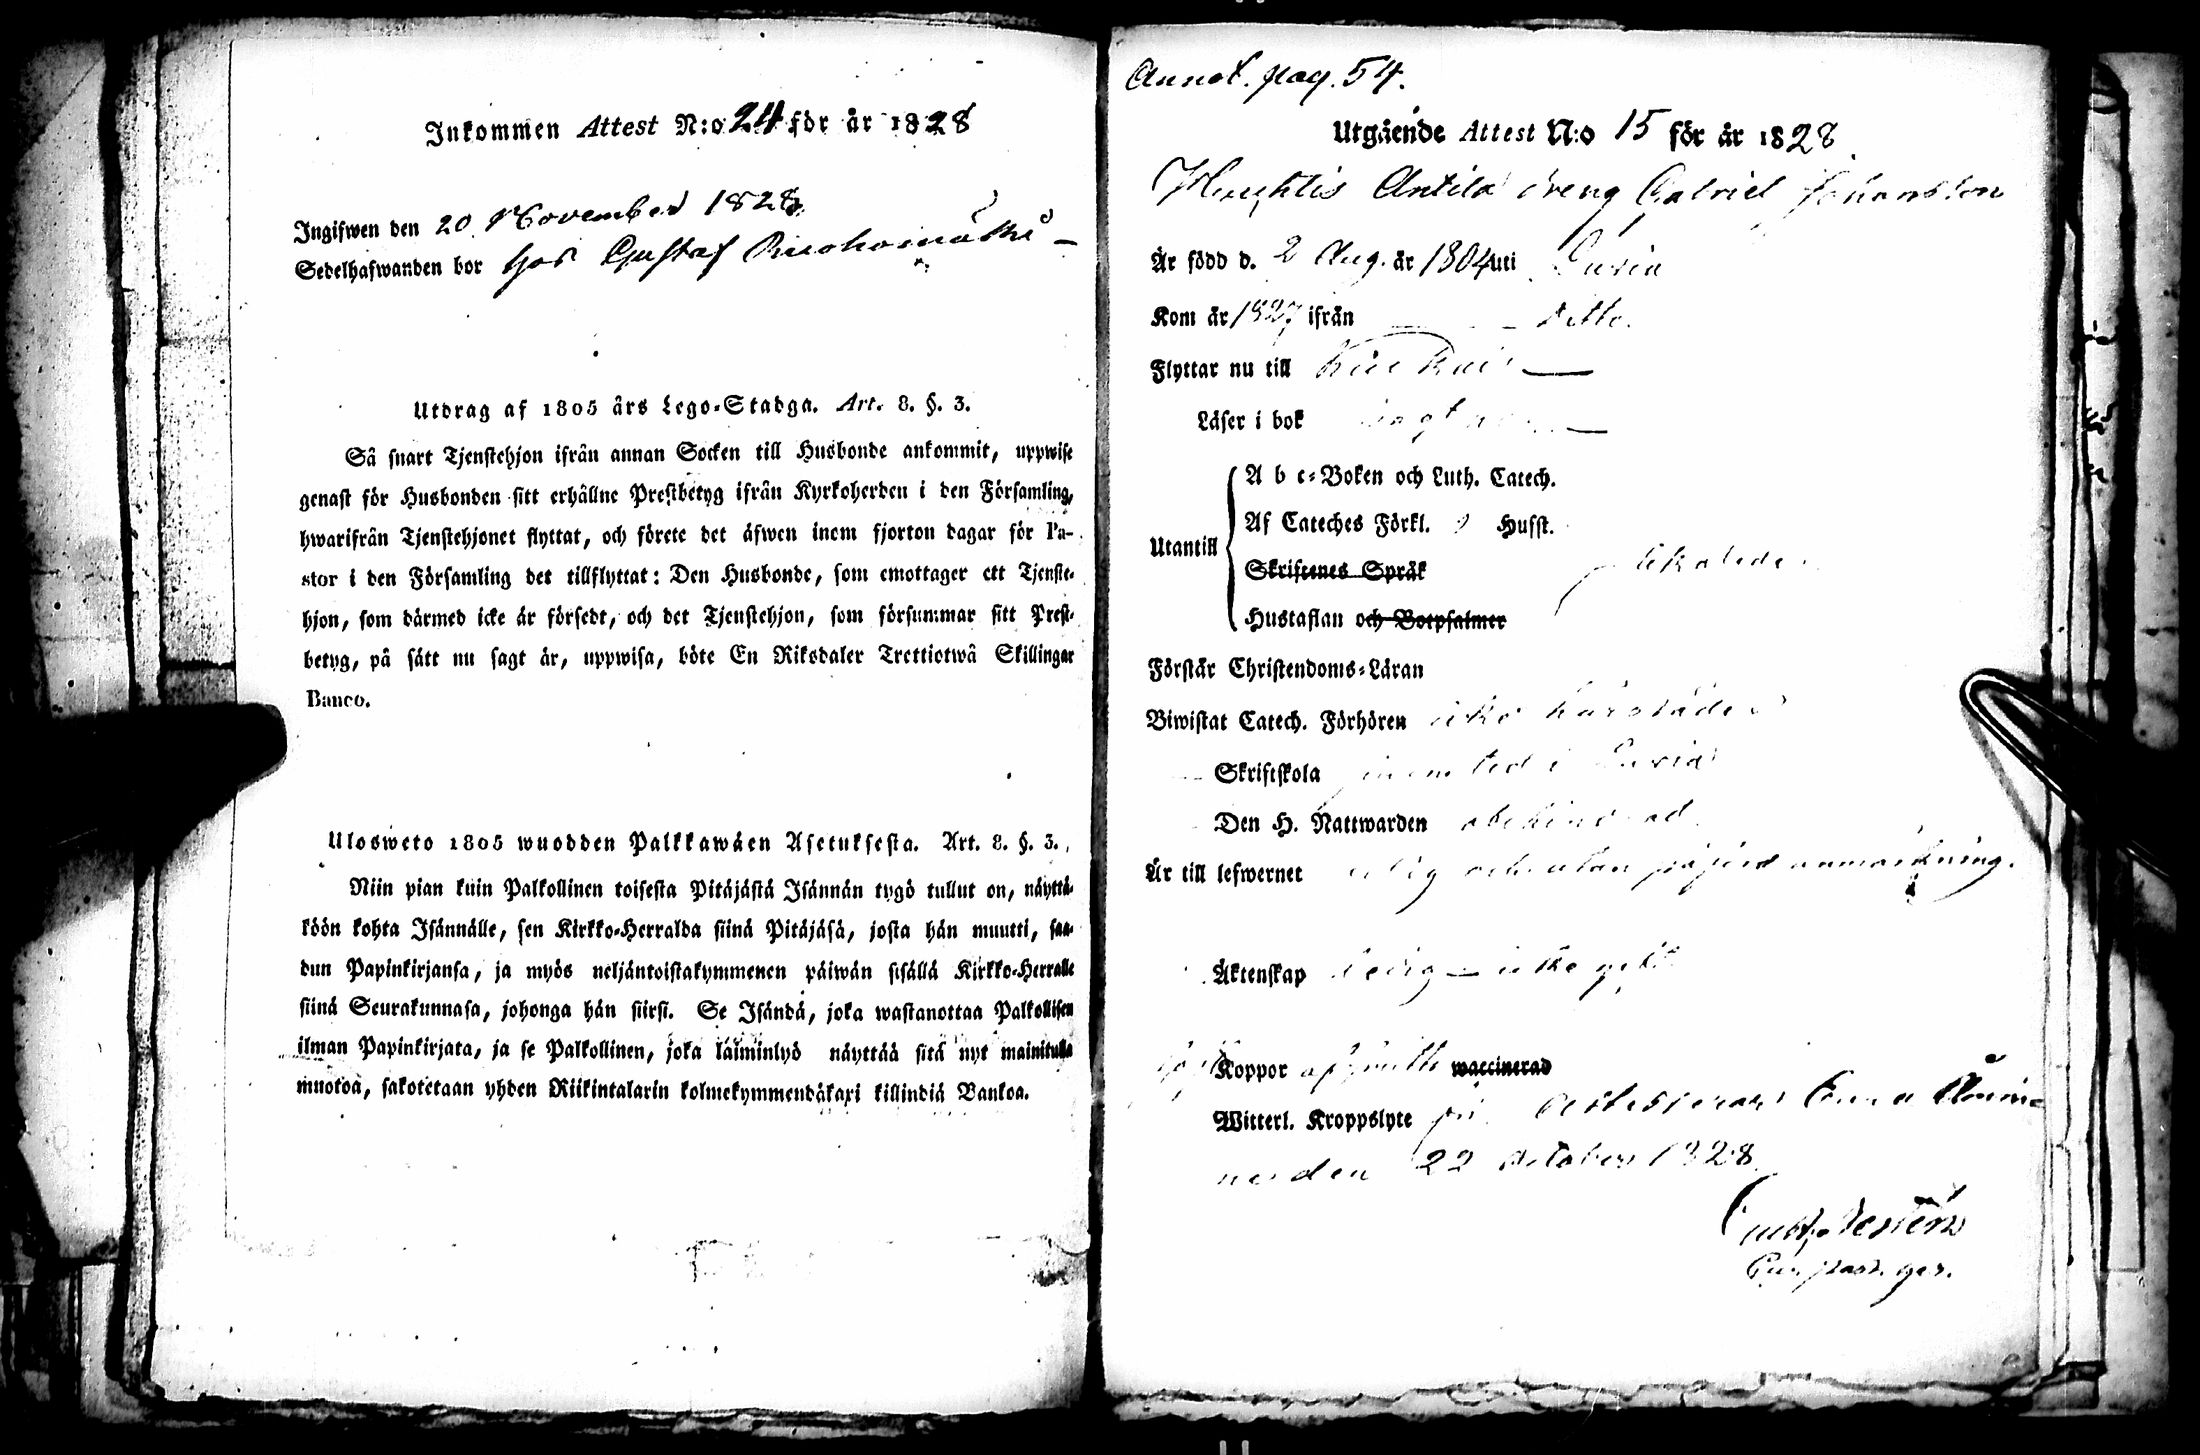 Inkommen Attest N:o 24 för år 1828
Ingifwen den 20 November 1828
Sedelhafwanden bor hos Gustaf Ruohomäki
Utdrag af 1805 års Lego-Stadga. Art. 8. §. 3.
Så snart Tjenstehjon ifrån annan Socken till Husbonde ankommit, uppwise
genast för Husbonden sitt erhållne Prestbetyg ifrån Kyrkoherden i den Församling,
hwarifrån Tjenstehjonet flyttat, och förete det äfwen inom fjorton dagar för Pa-
stor i den Församling det tillflyttat: Den Husbonde, som emottager ett Tjenste-
hjon, som därmed icke är försedt, och det Tjenstehjon, som försummar sitt Prest-
betyg, på sätt nu sagt är, uppwisa, böte En Riksdaler Trettiotwå Skillingar
Banco.
Ulosweto 1805 wuodden Palkkawäen Asetuksesta. Art. 8. §. 3.
Niin pian kuin Palkollinen toisesta Pitäjästä Isännän tygö tullut on, näyttä-
köön kohta Isännälle, sen Kirkko-Herralda siinä Pitäjäsä, josta hän muutti, saa-
dun Papinkirjansa, ja myös neljäntoistakymmenen päiwän sisällä Kirkko-Herralle
siinä Seurakunnasa, johonga hän siirsi. Se Isändä, joka wastanottaa Palkollisen
ilman Papinkirjata, ja se Palkollinen, joka laiminlyö näyttää sitä nyt mainitulla
muotoa, sakotetaan yhden Riikintalarin kolmekymmendäkaxi killindiä Bankoa.
Annot. pag. 54.
Utgående Attest N:o 15 för år 1828
Antila dreng Gabriel Johansson
Är född d. 2 Aug. år 1804 uti Luvia
Kom år 1827 ifrån ditto.
Flyttar nu till
Läser i bok
Utantill
A b c-Boken och Luth. Catech.
Af Cateches Förkl. Husst.
Skriftenes Språk
Hustaflan och Botpsalmer
Förstår Christendoms-Läran
Biwistat Catech. Förhören icke härstädes
Skriftskola i Luvia
Den H. Nattwarden obehindrad
Är till lefwernet ärlig och utan påförd anmärkning.
Äktenskap ledig – icke gift
Koppor waccinerad
Witterl. Kroppslyte
den 22 October 1828